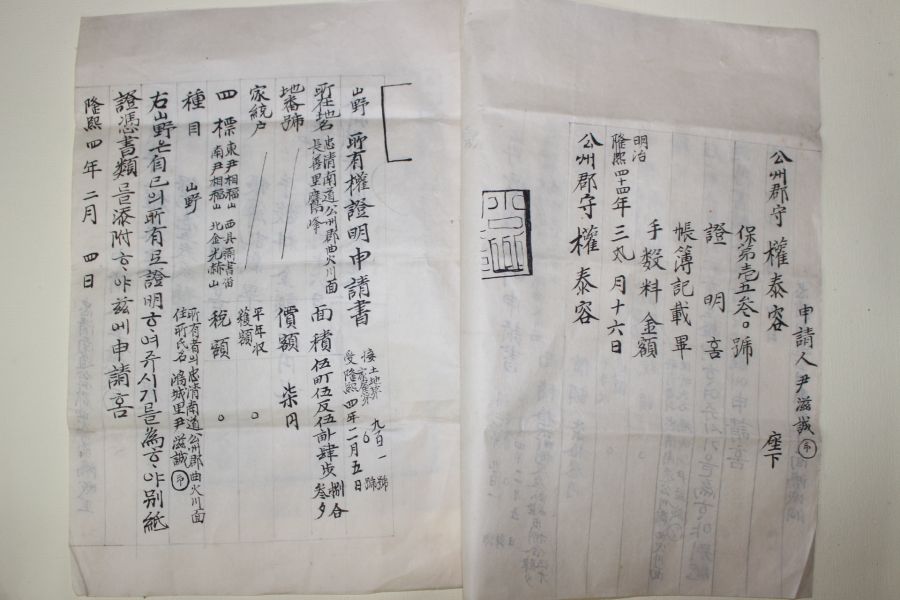 山野 所有權證明申請書
受隆熙四年二月五日 號
所在地名 忠清南道公州郡曲火川面
長善里鷹峰
面積 伍町伍反伍畝肆步捌合
參夕
地番號
價額 柒円
家統戶
平年收
穫額 〇
四標 東尹相福山
南尹相福山 北金光赫山
稅額 〇
種目 山野
所有者의 忠清南道公州郡曲火川面
住所氏名 鴻城里尹滋誠 印
右山野는自己의所有로證明ᄒᆞ여주시기를爲ᄒᆞ야別紙
證憑書類를添附ᄒᆞ야玆에申請홈
隆熙四年二月 四日
申請人尹滋誠 印
公州郡守 權泰容 座下
保第壱五叁〇號
證明홈
帳簿記載畢
手数料金額
明治
隆熙四十四年 三 月十六日
公州郡守 權泰容